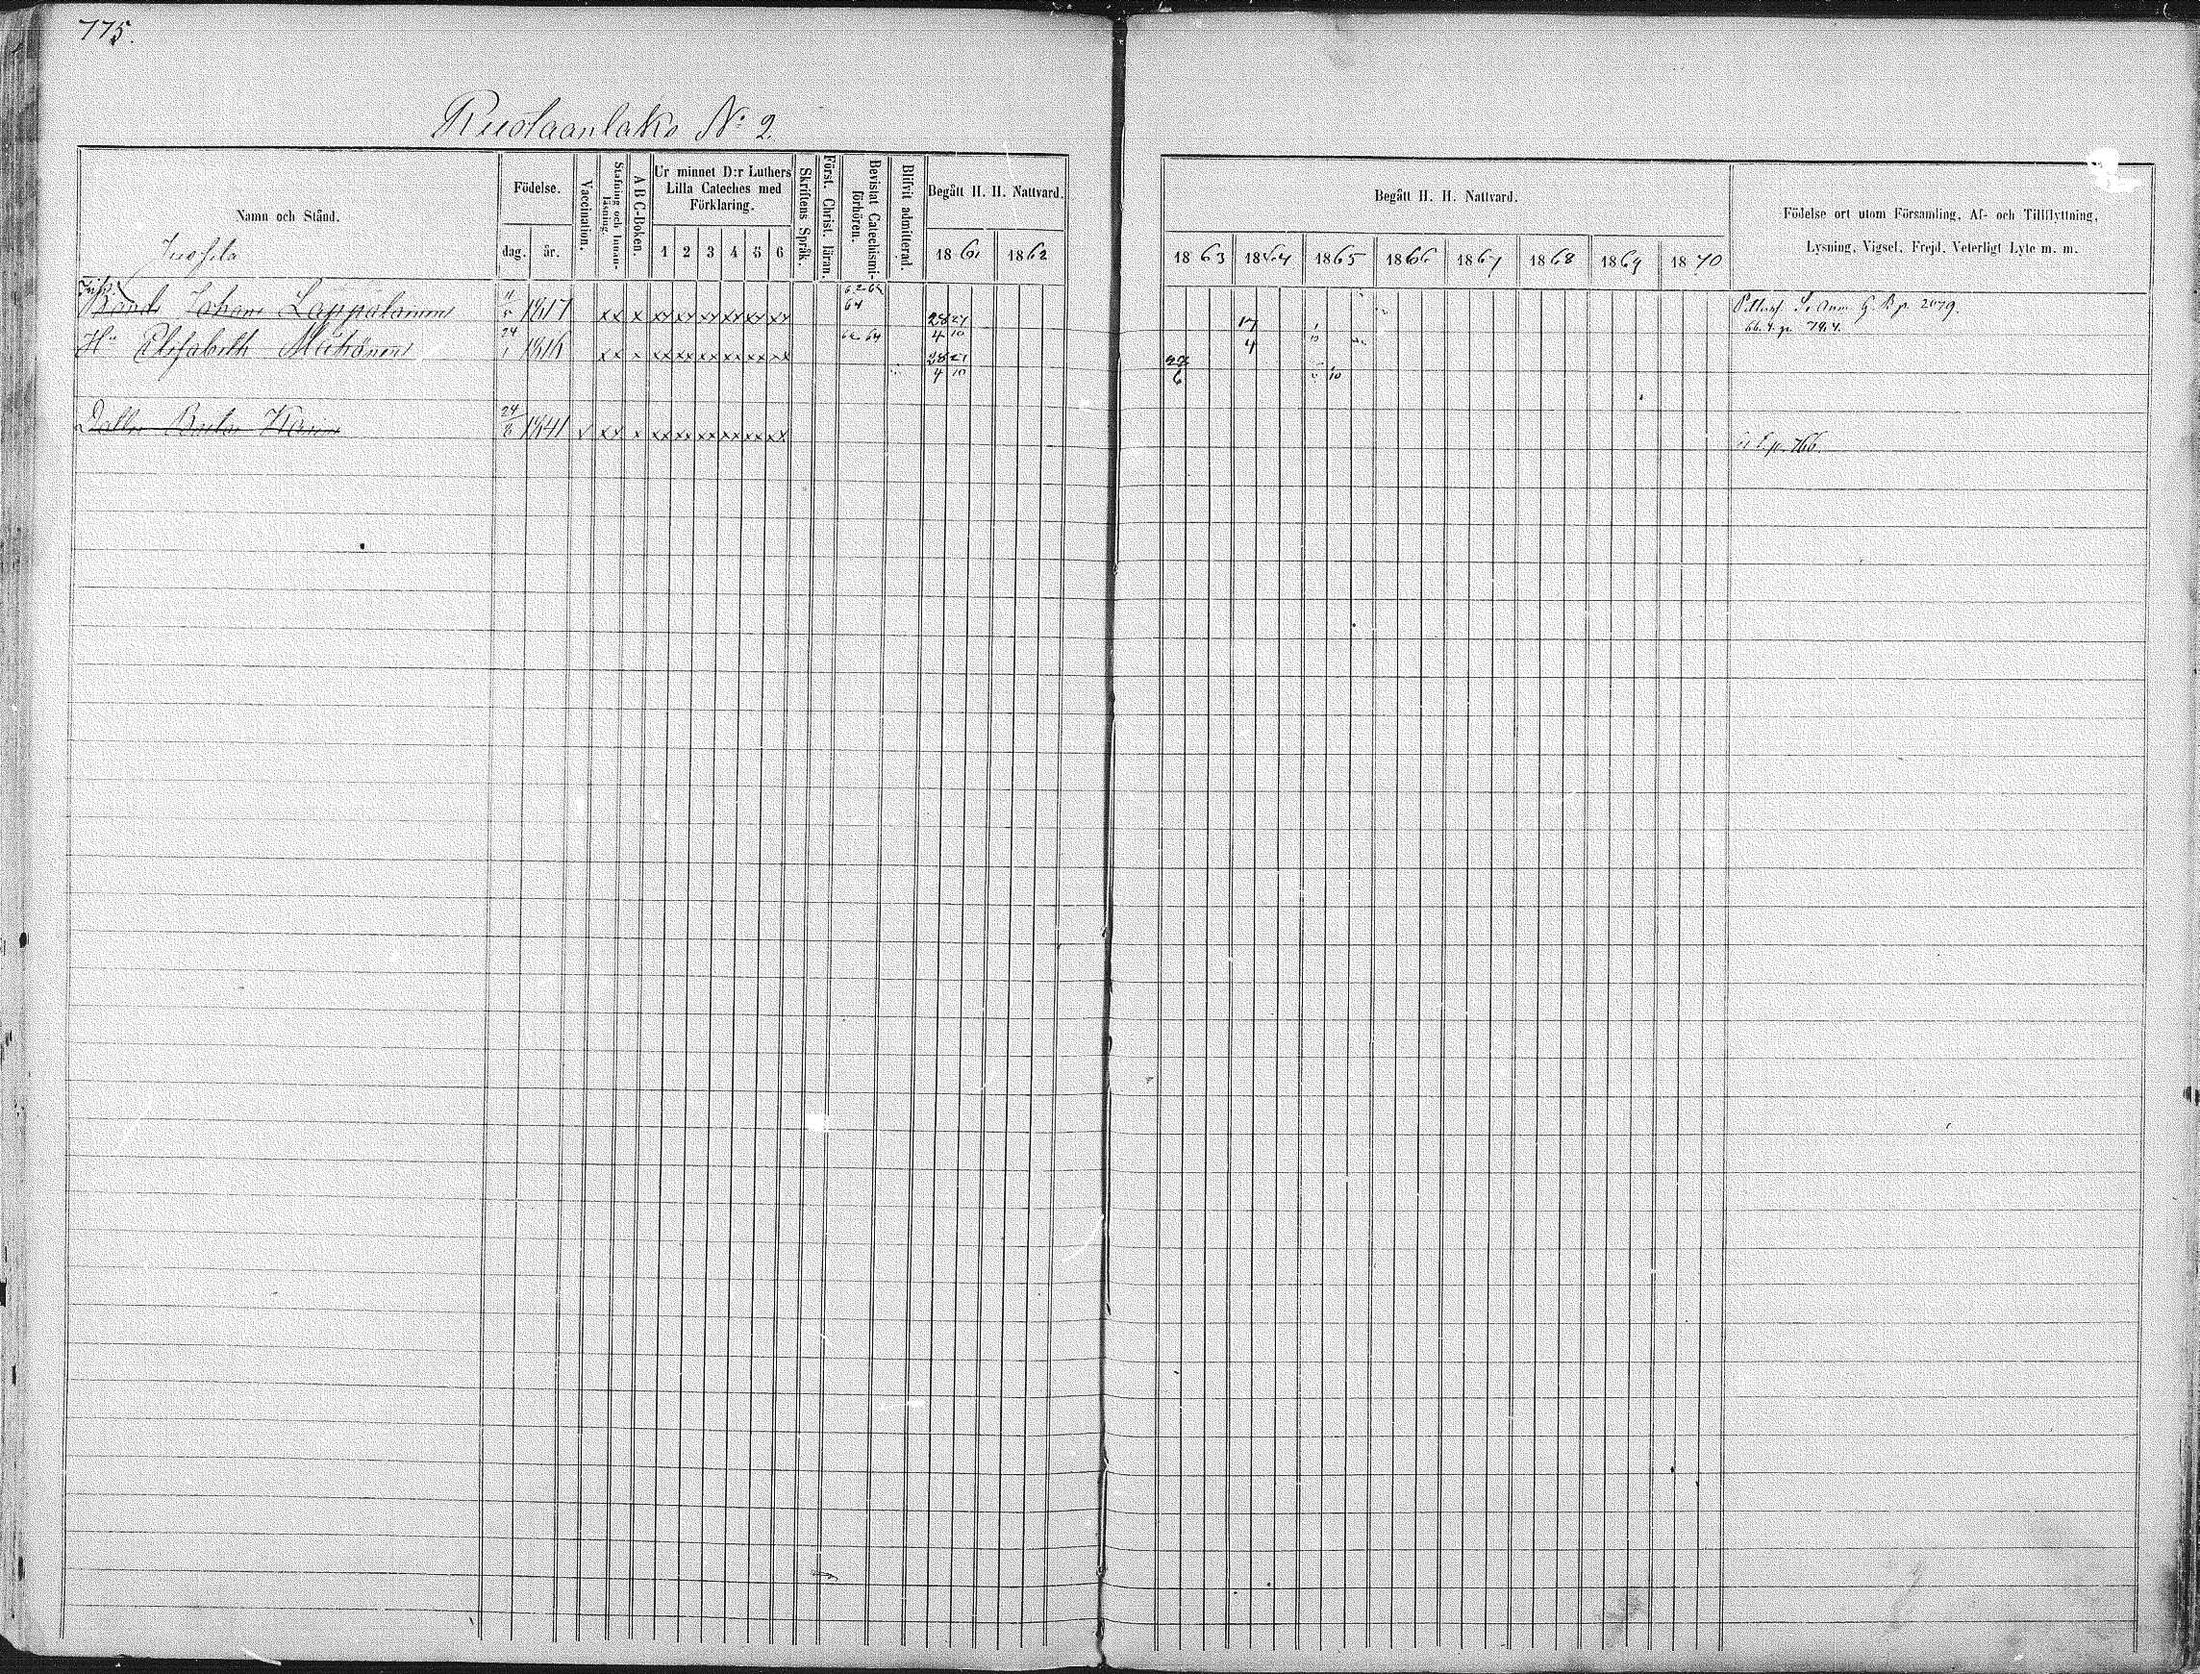 775.
Ruolaanlaks N:o 2.
Namn och Stånd.
Födelse.
dag. år.
Vaccination.
Stafning och Innanläsning.
A B C-Boken.
Ur minnet D:r Luthers Lilla Cateches med Förklaring.
1 2 3 4 5 6
Skriftens Språk.
Först. Christ. läran.
Bevistat Catechismi-förhören.
Blifvit admitterad.
Begått H. H. Nattvard.
1861 1862
Begått H. H. Nattvard.
1863 1864 1865 1866 1867 1868 1869 1870
Födelse ort utom Församling, Af- och Tillflyttning,
Lysning, Vigsel, Frejd, Veterligt Lyte m. m.
Bond Johan Lappalainen 1817 xx x xx xx xx xx xx xx 64 28/4 27/10 17/4 p. 2079.
Hu Elisabeth 24/1 1816 xx x xx xx xx xx xx xx 62 64 28/4 27/10 27/6
Dotter Karin 24/6 1841 v xx x xx xx xx xx xx xx p. 766.